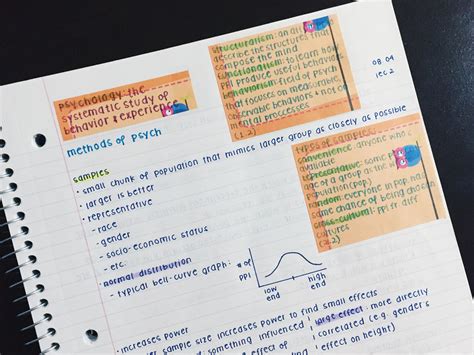 psychology: the
systematic study of
behavior & experience
structuralism: an att
describe the structures that
compose the mind
functionalism: to learn how
ppl produce useful behaviors
behaviorism: field of psych
that focuses on measurable,
observable behaviors & not on
mental processes
(1.2)
08 04
lec 2
methods of psych
samples
• small chunk of population that mimics larger group as closely as possible
• larger is better
• representative
- race
- gender
- socio-economic status
- etc.
• normal distribution
- typical bell-curve graph:
# of
ppl
low
end
high
end
types of samples:
convenience: anyone who's
available
representative: some
age of a group as the
population (pop)
random: everyone in pop. has
same chance of being chosen
cross-cultural: ppl fr diff
cultures
(2.2)
• increases power
sample size increases power to find small effects
something influenced
effect of
large effect: more directly
correlated (e.g. gender's
effect on height)